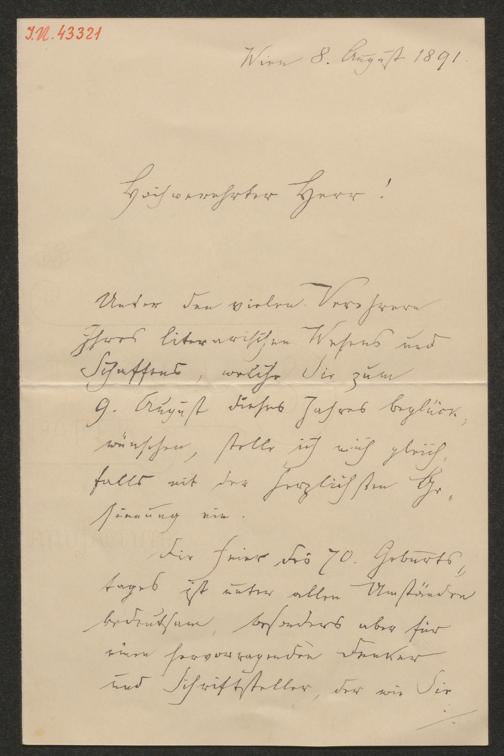 J.N. 43321
Wien 8. August 1891.
Hochverehrter Herr!
Unter den vielen Verehrern
Ihres literarischen Wesens und
Schaffens, welche Sie zum
9. August dieses Jahres beglück-
wünschen, stelle ich mich gleich-
falls mit der herzlichsten Ge-
sinnung ein.
Die Feier des 70. Geburts-
tages ist unter allen Umständen
bedeutsam, besonders aber für
einen hervorragenden Denker
und Schriftsteller, der wie Sie